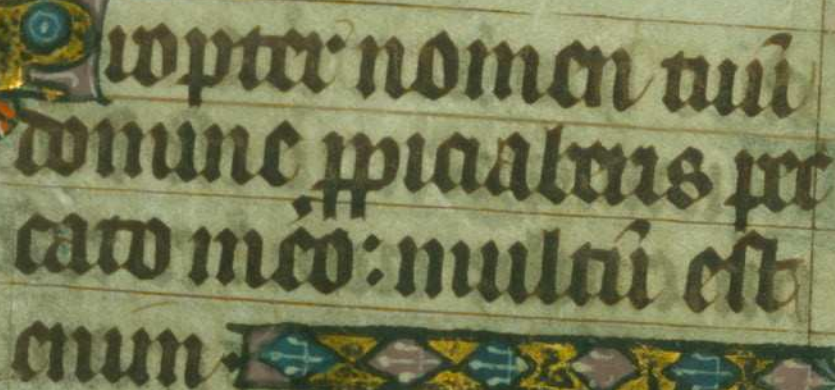 Propter nomen tuū
domine ꝓpiciaberis pec
cato meo: multū est
enim